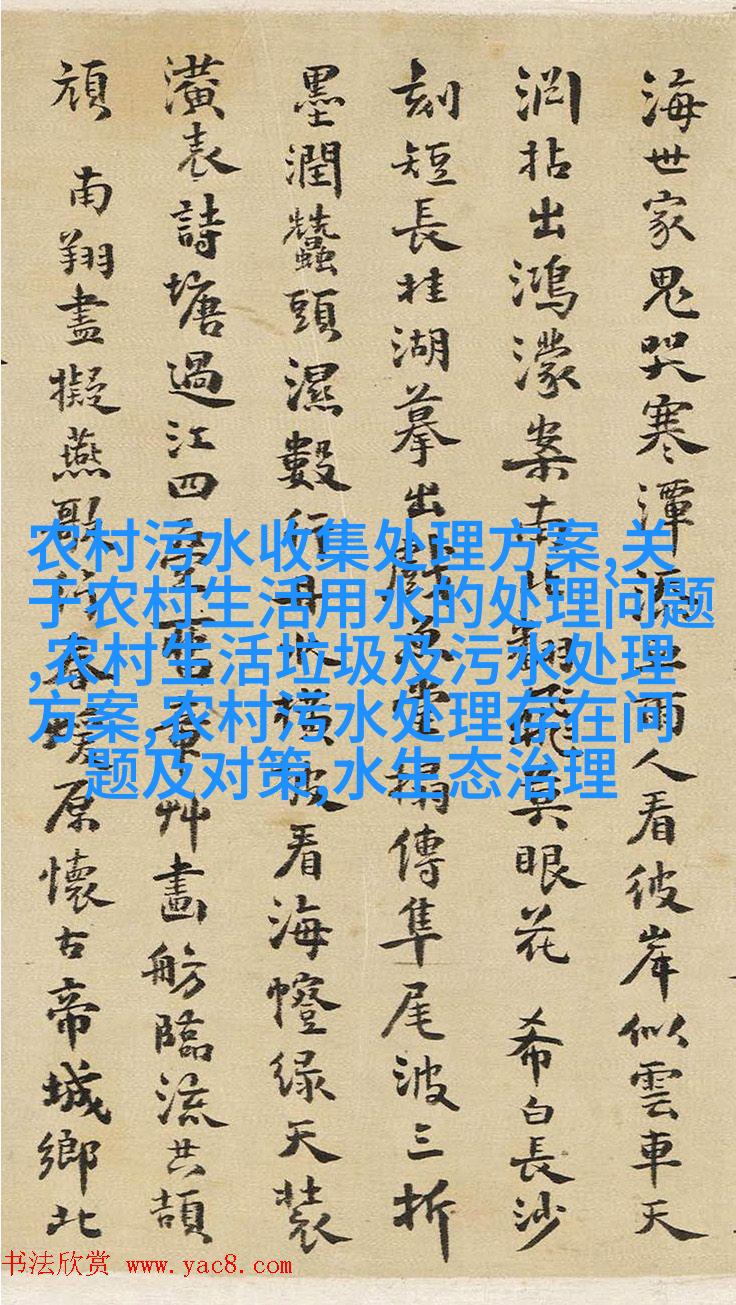 海世家鬼哭寒潭雨人看彼岸似雲車天
拈出鴻濛案南翻飛莫眼花 希白長沙
刻短長桂湖摹出戲堂搨傳隼尾波三折
墨潤蠶頭濕數行看海幢绿天裝
潢表詩塘過江四章艸畫舫臨流共頡
頏 南翔盡擬燕歌行春原懷古帝城鄉北
农村污水收集处理方案,关
于农村生活用水的处理问题
,农村生活垃圾及污水处理
方案,农村污水处理存在问
题及对策,水生态治理
书法欣赏 www.yac8.com